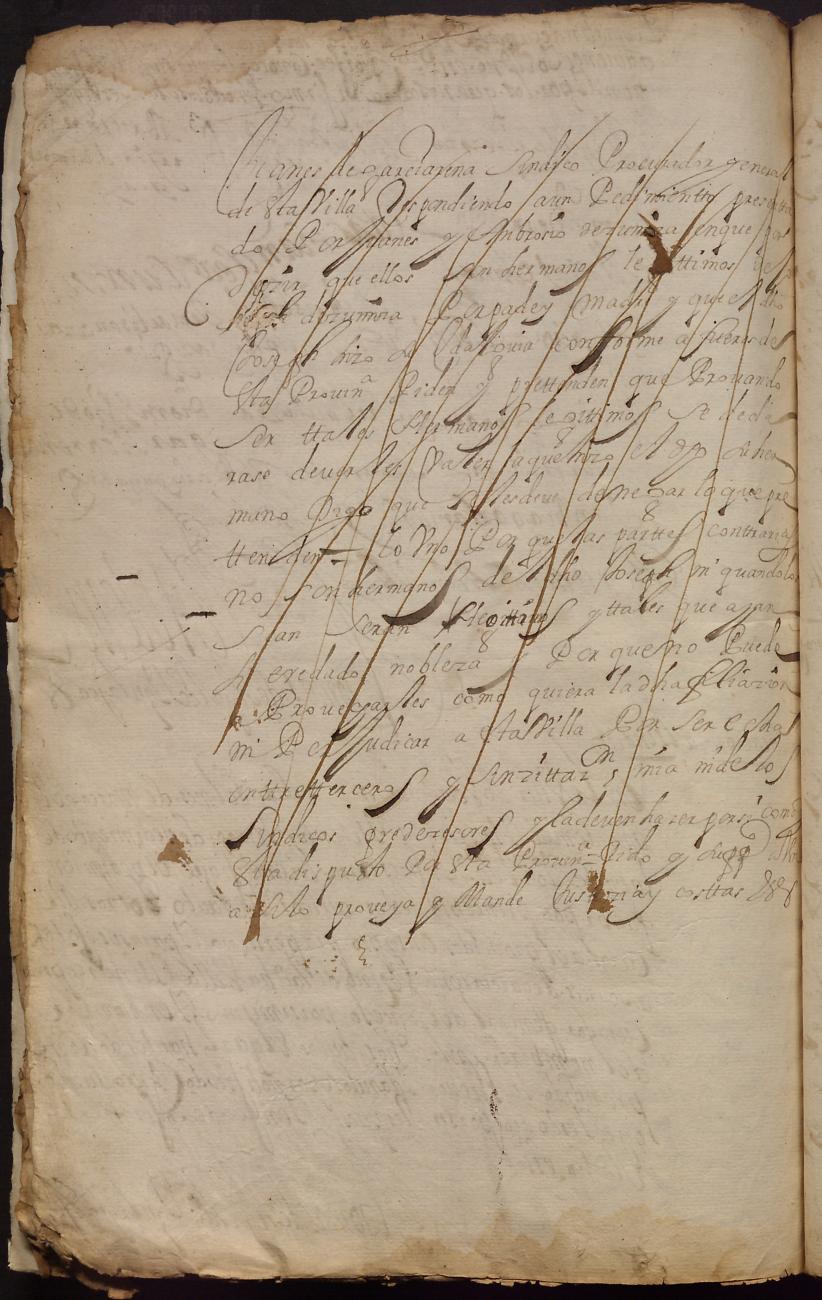 Juanes de garciarena sindico Procurador general
de Sta Villa Respondiendo a un Pedimientto presentta
do Por Juanes y Ambrosio de zumza en que por
Dezir que ellos son hermanos lexittimos de
Joseph dezumza Por padre y Madre y que el dho
Joseph hizo su conforme a fueros de
sta Provin^a Piden y prettenden que Provando
Ser ttales Hermanos lexittimos Se decla
rase deverles Valer la que hizo el dho su her
mano Digo que se les deve denegar lo que pre
ttenden = lo Uno Por que las parttes contrarias
no son hermanos de dho Joseph ni quando lo
Sean Seran lexittimos y ttales que ayan
heredado nobleza y Por que no Puede
a Provecharles como quiera la dha filiazion
ni Perjudicar a esta Villa Por Ser echa
enttre terceros y Sin zittaz^on mia ni de los
Sindicos predezesores y la deven hazer por si como
Sta dispuesto Por Sta Provin^a = Pido y Supp^co
assi lo provea y Mande Justizia y costtas &&